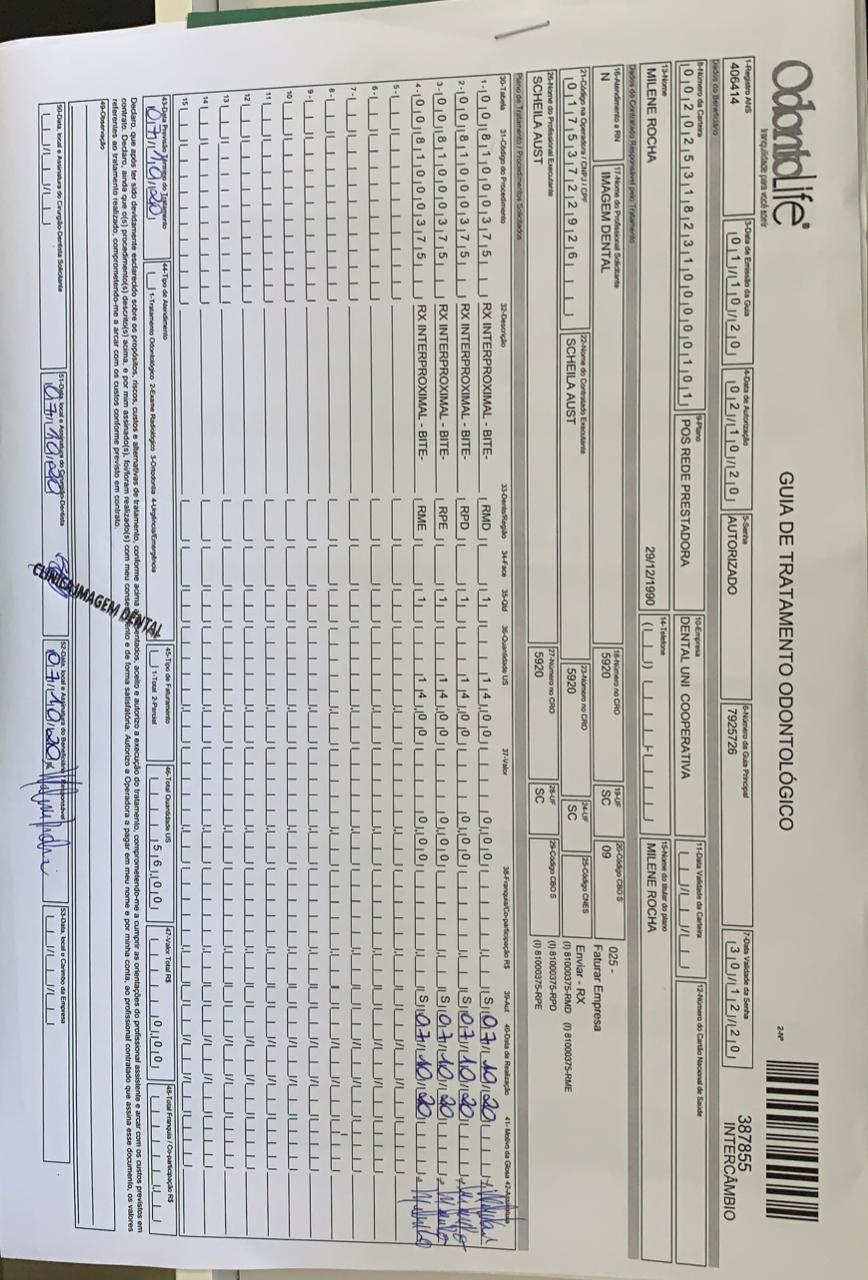 OdontoLife®
tranquilidade para você sorrir
GUIA DE TRATAMENTO ODONTOLÓGICO
2-Nº
387855
INTERCÂMBIO
1-Registro ANS
406414
3-Data de Emissão da Guia
01/10/20
4-Data de Autorização
02/10/20
5-Senha
AUTORIZADO
6-Número da Guia Principal
7925726
7-Data Validade da Senha
30/12/20
Dados do Beneficiário
8-Número da Carteira
00202531823100000101
9-Plano
POS REDE PRESTADORA
10-Empresa
DENTAL UNI COOPERATIVA
11-Data Validade da Carteira
12-Número do Cartão Nacional de Saúde
13-Nome
MILENE ROCHA
29/12/1990
14-Telefone
15-Nome do titular do plano
MILENE ROCHA
Dados do Contratado Responsável pelo Tratamento
16-Atendimento a RN
N
17-Nome do Profissional Solicitante
IMAGEM DENTAL
18-Número no CRO
5920
19-UF
SC
20-Código CBO S
09
025 -
Faturar Empresa
21-Código na Operadora / CNPJ / CPF
01753722926
22-Nome do Contratado Executante
SCHEILA AUST
23-Número no CRO
5920
24-UF
SC
25-Código CNES
Enviar - RX
(I) 81000375-RMD (I) 81000375-RME
(I) 81000375-RPD
(I) 81000375-RPE
26-Nome do Profissional Executante
SCHEILA AUST
27-Número no CRO
5920
28-UF
SC
29-Código CBO S
Plano de Tratamento / Procedimentos Solicitados
30-Tabela 31-Código do Procedimento 32-Descrição 33-Dente/Região 34-Face 35-Qtd 36-Quantidade US 37-Valor 38-Franquia/Co-participação R$ 39-Aut 40-Data de Realização 41- Motivo da Glosa 42-Assinatura
1- 00 81000375 RX INTERPROXIMAL - BITE- RMD 1 14,00 0,00 S 07/10/20
2- 00 81000375 RX INTERPROXIMAL - BITE- RPD 1 14,00 0,00 S 07/10/20
3- 00 81000375 RX INTERPROXIMAL - BITE- RPE 1 14,00 0,00 S 07/10/20
4- 00 81000375 RX INTERPROXIMAL - BITE- RME 1 14,00 0,00 S 07/10/20
5-
6-
7-
8-
9-
10
11
12
13
14
15
43-Data Previsão Término do Tratamento
07/10/20
44-Tipo de Atendimento
1-Tratamento Odontológico 2-Exame Radiológico 3-Ortodontia 4-Urgência/Emergência
45-Tipo de Faturamento
1-Total 2-Parcial
46-Total Quantidade US
56,00
47-Valor Total R$
0,00
48-Total Franquia / Co-participação R$
Declaro, que após ter sido devidamente esclarecido sobre os propósitos, riscos, custos e alternativas de tratamento, conforme acima apresentados, aceito e autorizo a execução do tratamento, comprometendo-me a cumprir as orientações do profissional assistente e arcar com os custos previstos em
contrato. Declaro, ainda que o(s) procedimento(s) descrito(s) acima, e por mim assinado(s), foi/foram realizado(s) com meu consentimento e de forma satisfatória. Autorizo a Operadora a pagar em meu nome e por minha conta, ao profissional contratado que assina esse documento, os valores
referentes ao tratamento realizado, comprometendo-me a arcar com os custos conforme previsto em contrato.
49-Observação
50-Data, local e Assinatura do Cirurgião-Dentista Solicitante
51-Data, local e Assinatura do Cirurgião-Dentista
07/10/20
CLÍNICA IMAGEM DENTAL
52-Data, local e Assinatura do Beneficiário / Responsável
07/10/20
53-Data, local e Carimbo da Empresa